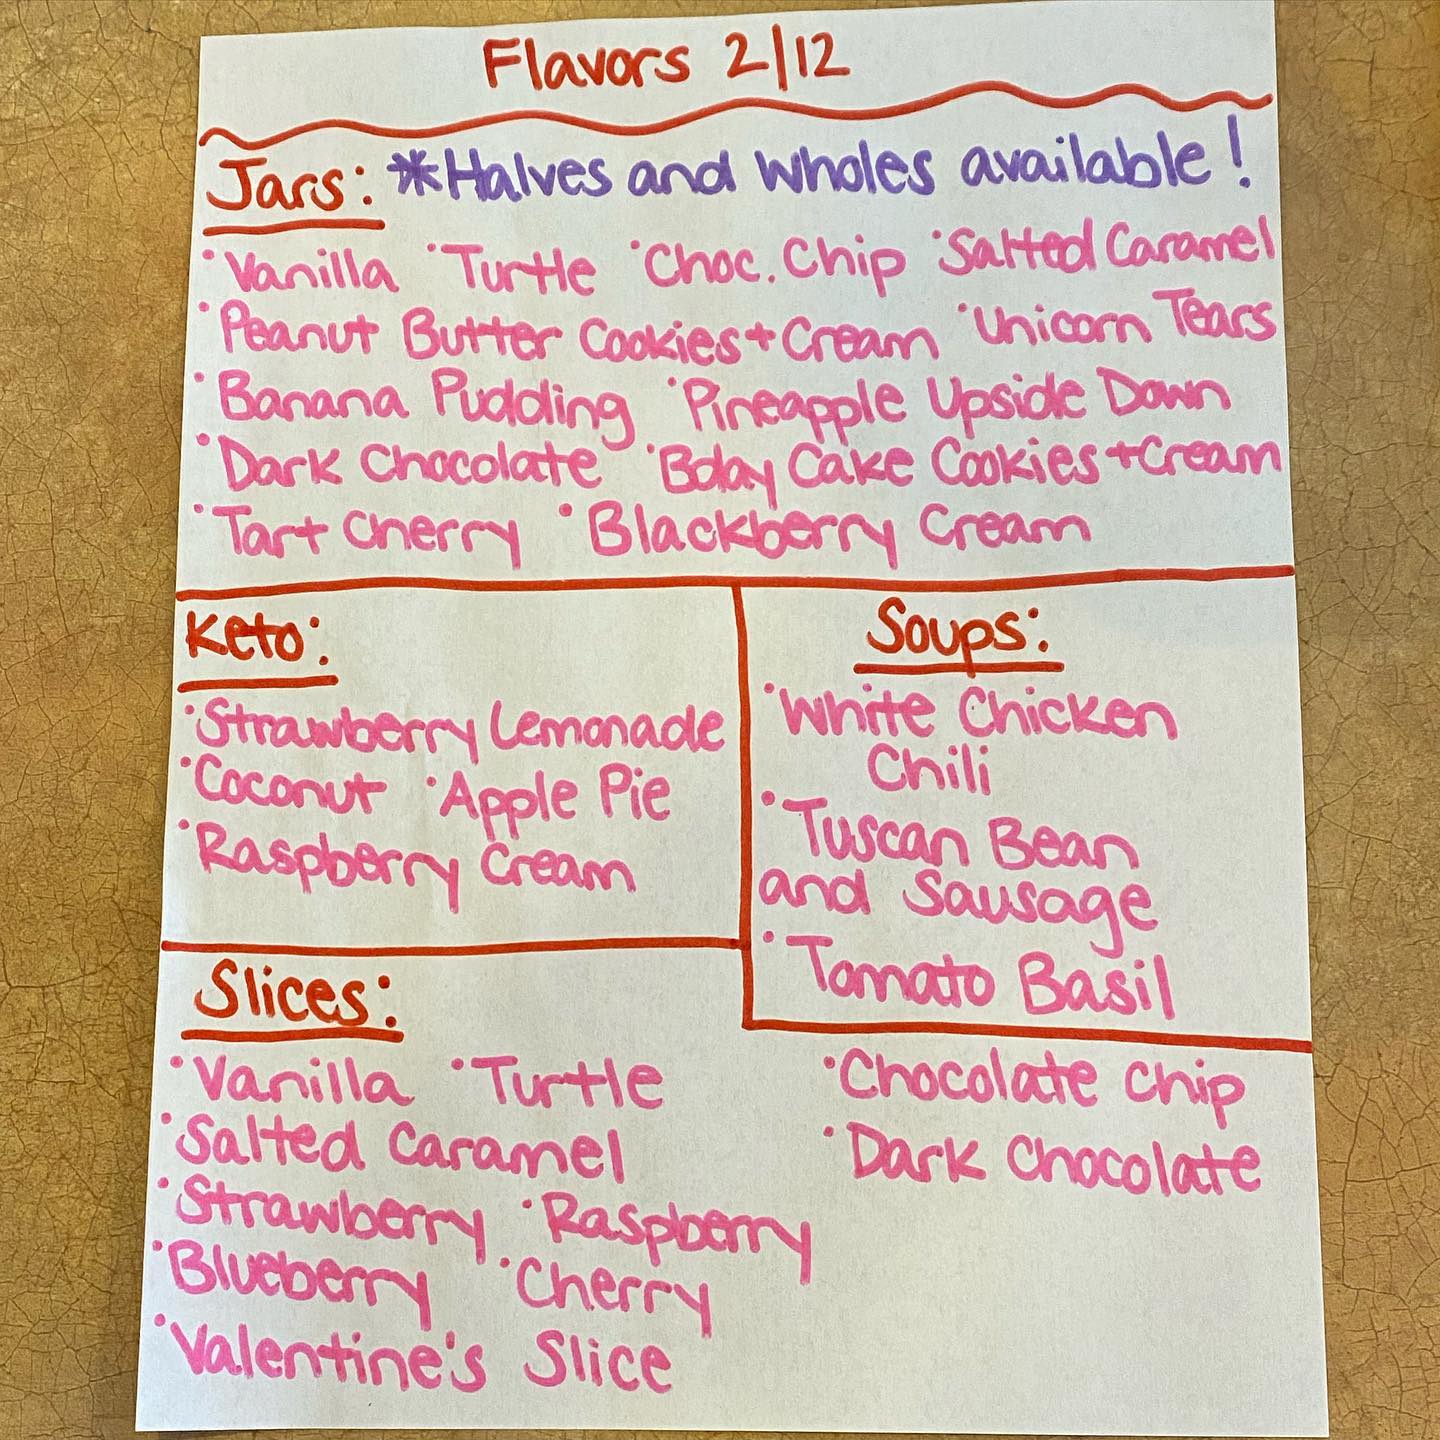 Flavors 2/12
Jars: *Halves and Wholes available!
•Vanilla •Turtle •Choc. Chip •Salted Caramel
•Peanut Butter Cookies+Cream •Unicorn Tears
•Banana Pudding •Pineapple Upside Down
•Dark Chocolate •Bday Cake Cookies+Cream
•Tart Cherry •Blackberry Cream
Keto:
•Strawberry Lemonade
•Coconut •Apple Pie
•Raspberry Cream
Soups:
•White Chicken
Chili
•Tuscan Bean
and Sausage
•Tomato Basil
Slices:
•Vanilla •Turtle
•Salted Caramel
•Strawberry •Raspberry
•Blueberry •Cherry
•Valentine's Slice
•Chocolate Chip
•Dark Chocolate